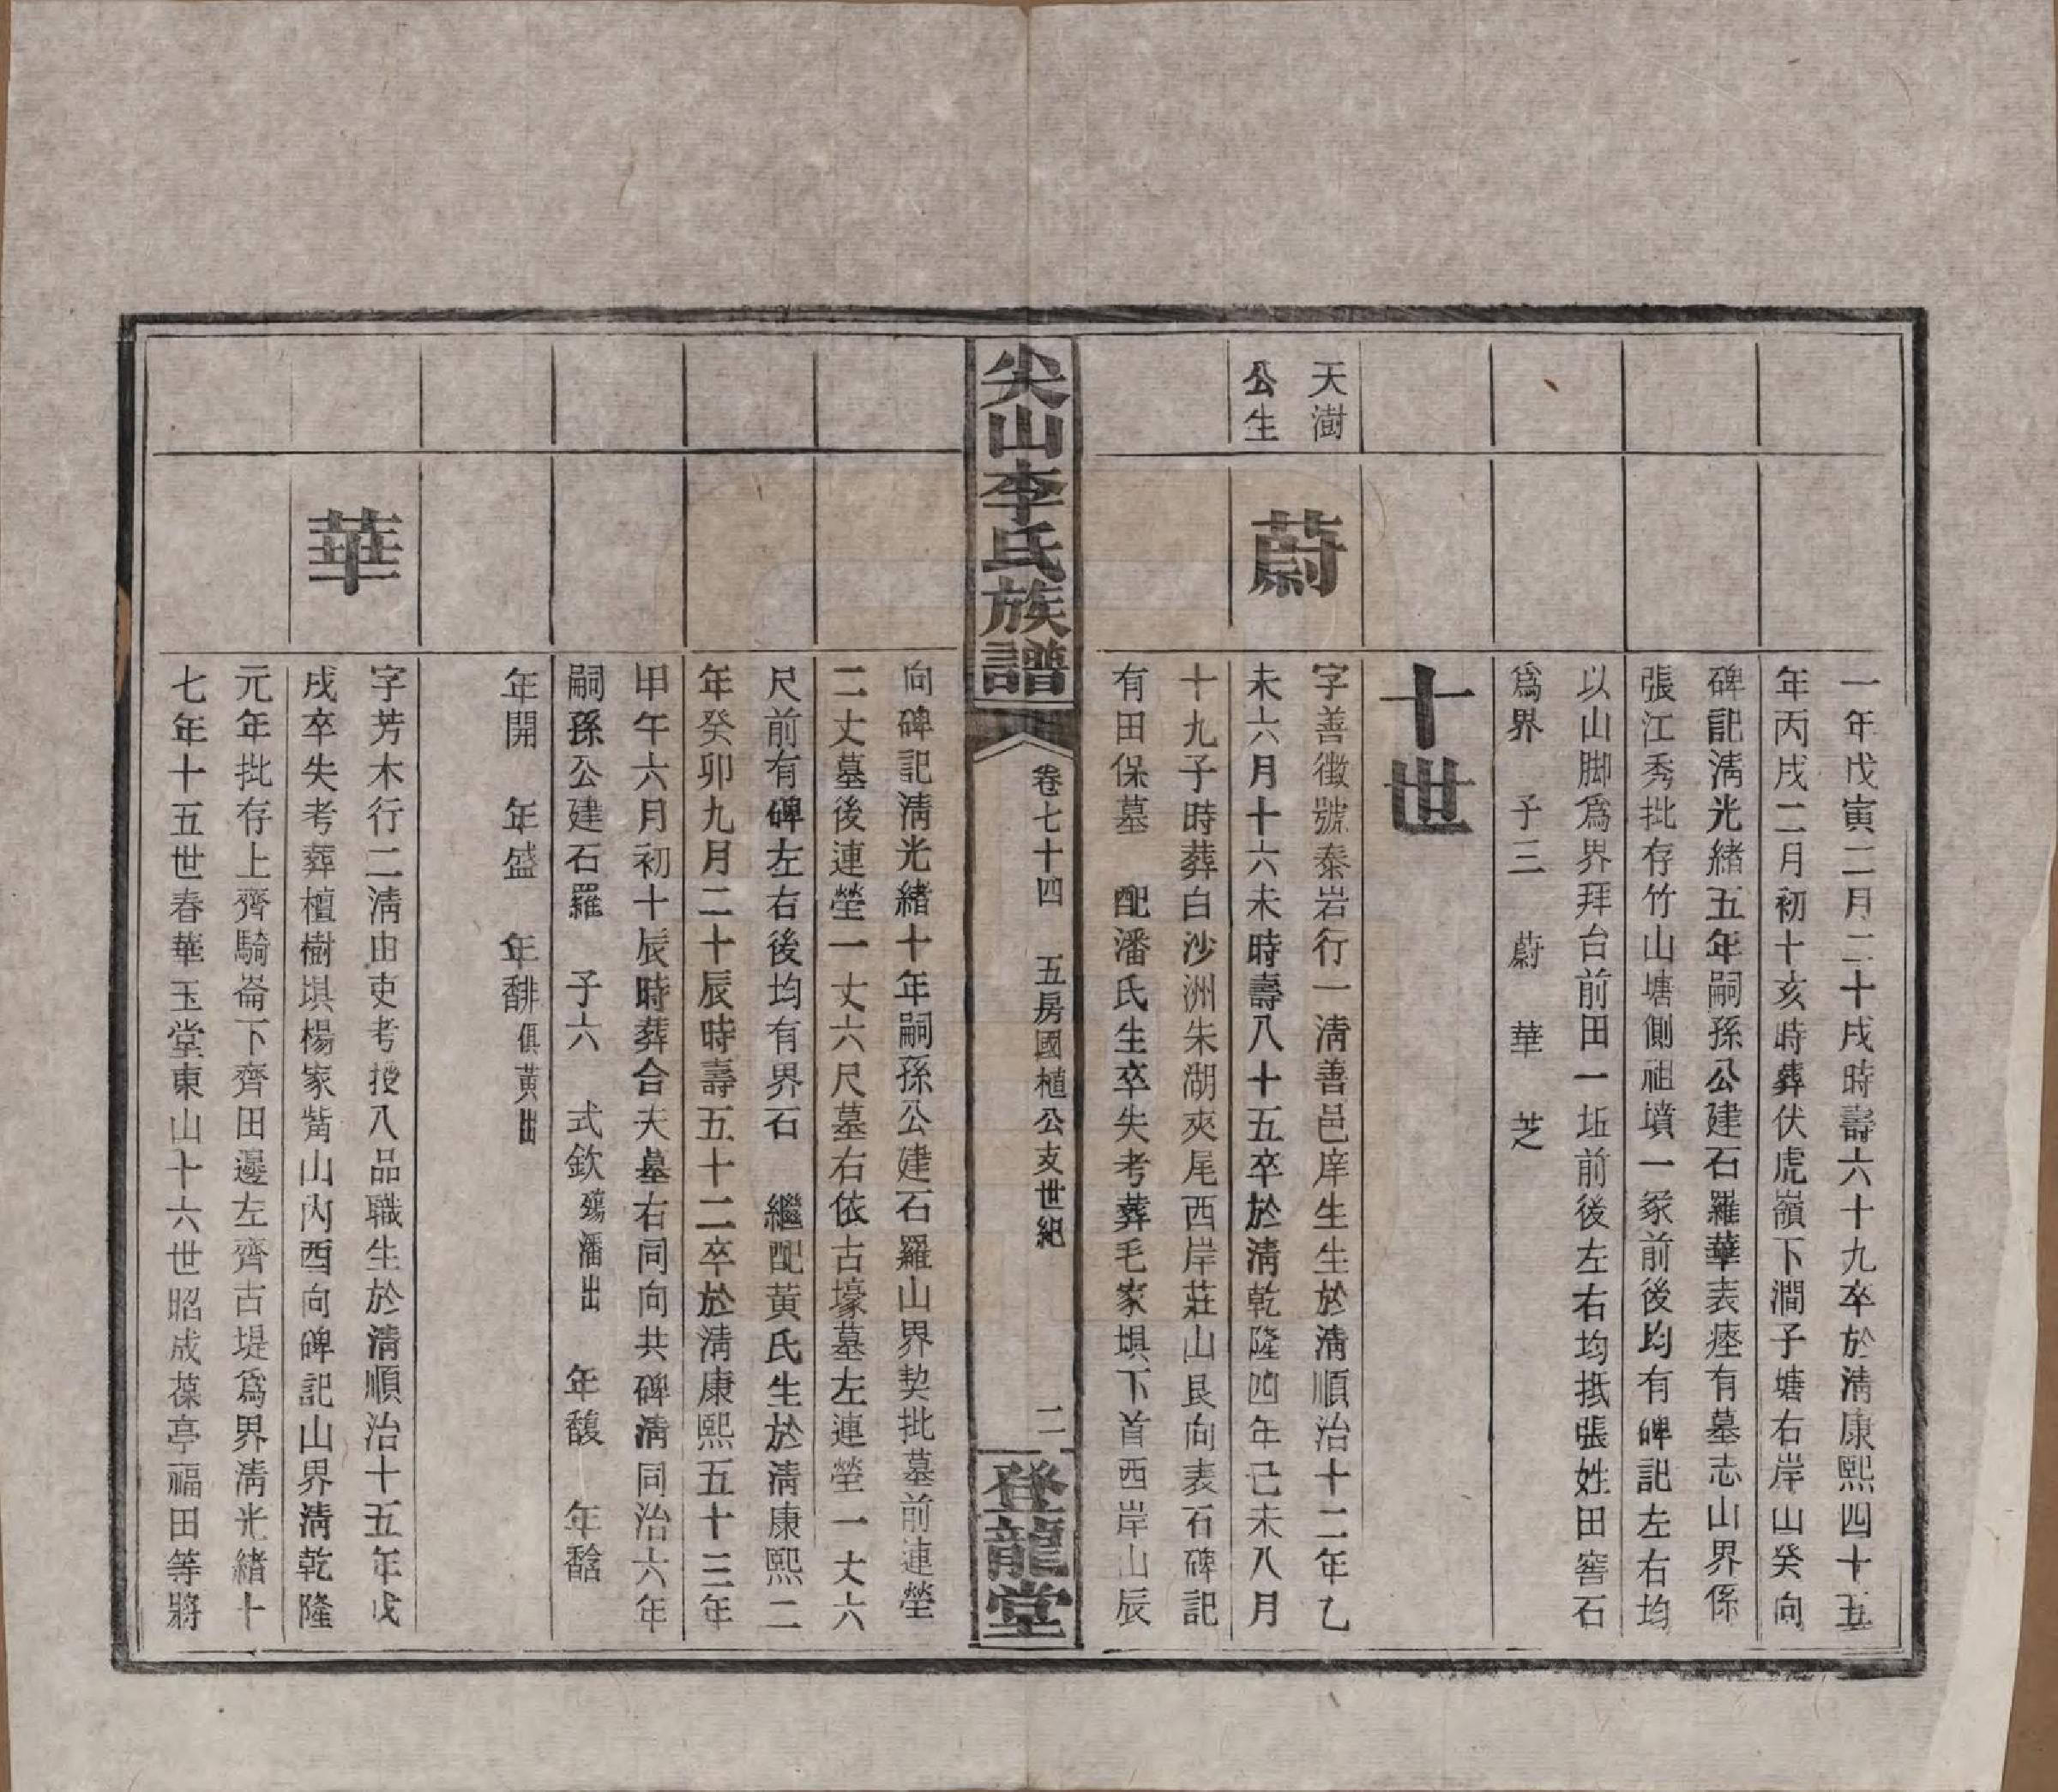 一年戊寅二月二十戌時壽六十九卒於淸康熙四十五
年丙戌二月初十亥時葬伏虎嶺下澗子塘右岸山癸向
碑記淸光緒五年嗣孫公建石羅華表瘞有墓志山界係
張江秀批存竹山塘側祖墳一冢前後均有碑記左右均
以山脚爲界拜台前田一坵前後左右均抵張姓田窖石
爲界　子三　蔚　華　芝
十世
天澍
公生
蔚
字善徵號泰岩行一淸善邑庠生生於淸順治十二年乙
未六月十六未時壽八十五卒於淸乾隆四年己未八月
十九子時葬白沙洲朱湖夾尾西岸莊山艮向表石碑記
有田保墓　配潘氏生卒失考葬毛家塤下首西岸山辰
尖山李氏族譜
卷七十四　五房國植公支世紀
二
登龍堂
向碑記淸光緒十年嗣孫公建石羅山界契批墓前連塋
二丈墓後連塋一丈六尺墓右依古壕墓左連塋一丈六
尺前有碑左右後均有界石　繼配黃氏生於淸康熙二
年癸卯九月二十辰時壽五十二卒於淸康熙五十三年
甲午六月初十辰時葬合夫墓右同向共碑淸同治六年
嗣孫公建石羅　子六　式欽殤潘出　年馥　年馠
年開　年盛　年馡俱黃出
華
字芳木行二淸由吏考授八品職生於淸順治十五年戊
戌卒失考葬檀樹塤楊家觜山內酉向碑記山界淸乾隆
元年批存上齊騎崙下齊田邊左齊古堤爲界淸光緒十
七年十五世春華玉堂東山十六世昭成葆亭福田等將